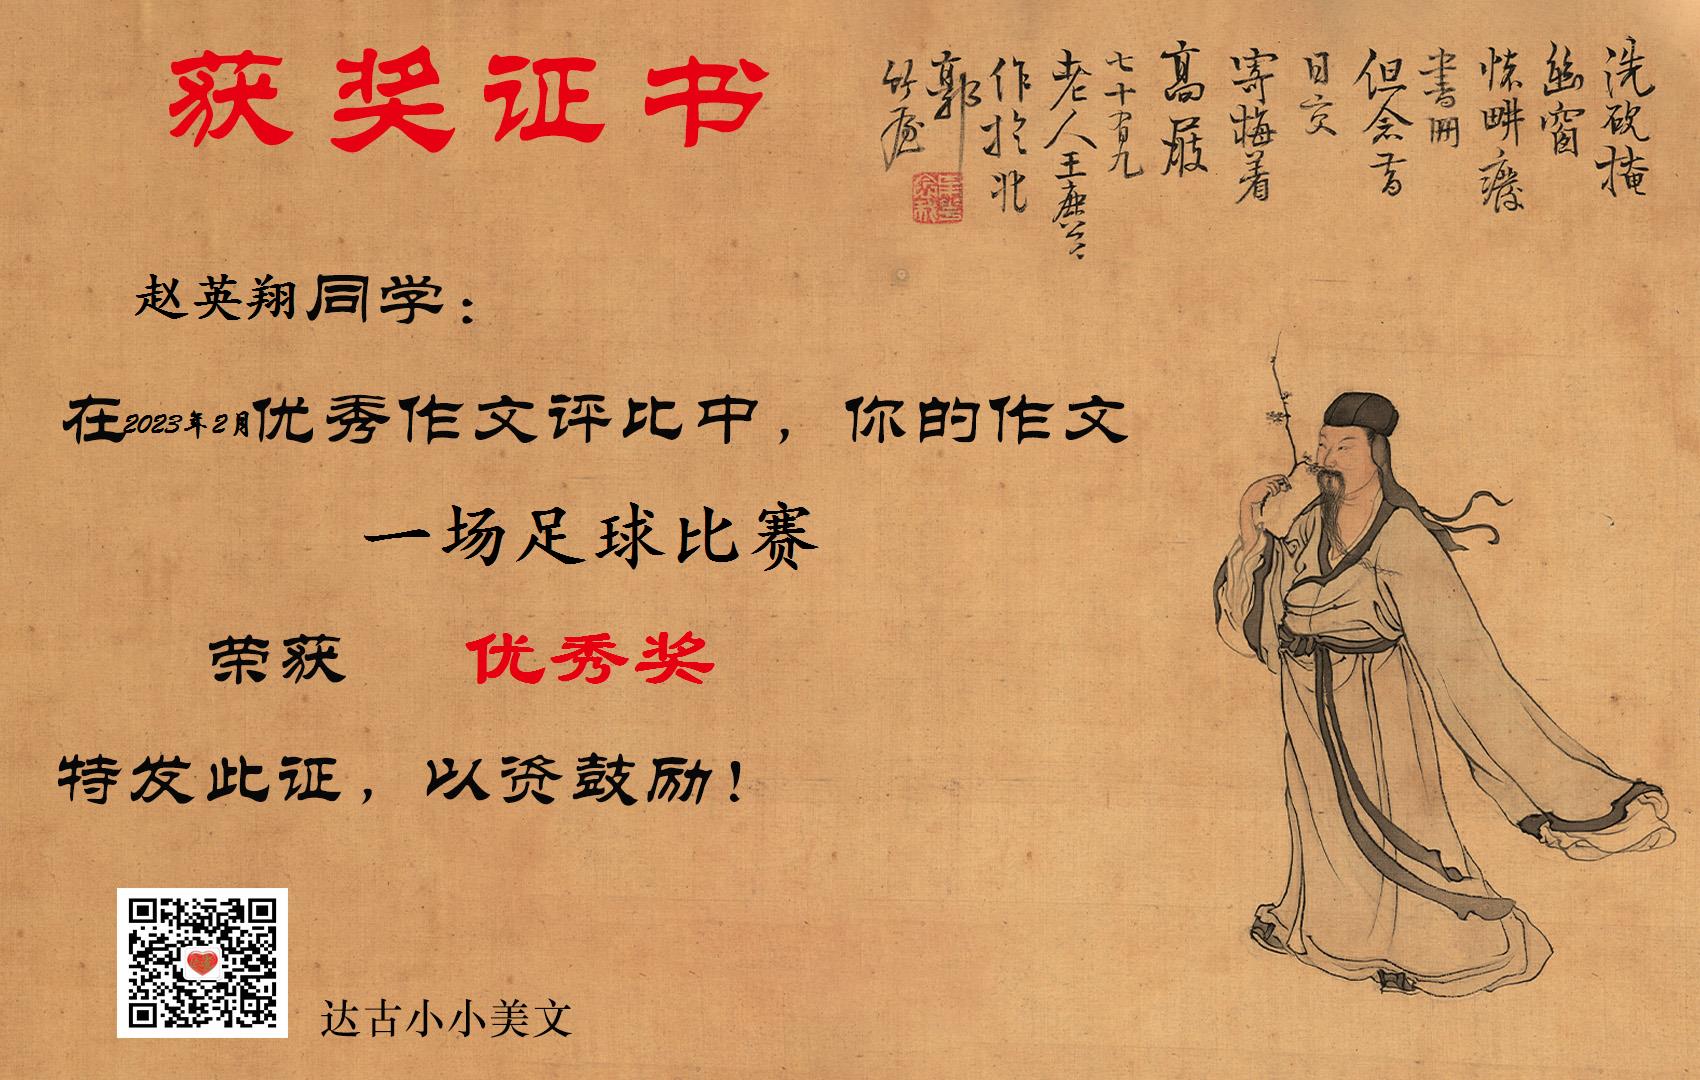 获奖证书
洗砚掩
幽窗
怪畔癡
書冊
但念昔
日交
寄梅着
高屐
七十有九
老人王
作於北
郭
竹
赵英翔同学：
在2023年2月优秀作文评比中，你的作文
一场足球比赛
荣获 优秀奖
特发此证，以资鼓励！
达古小小美文